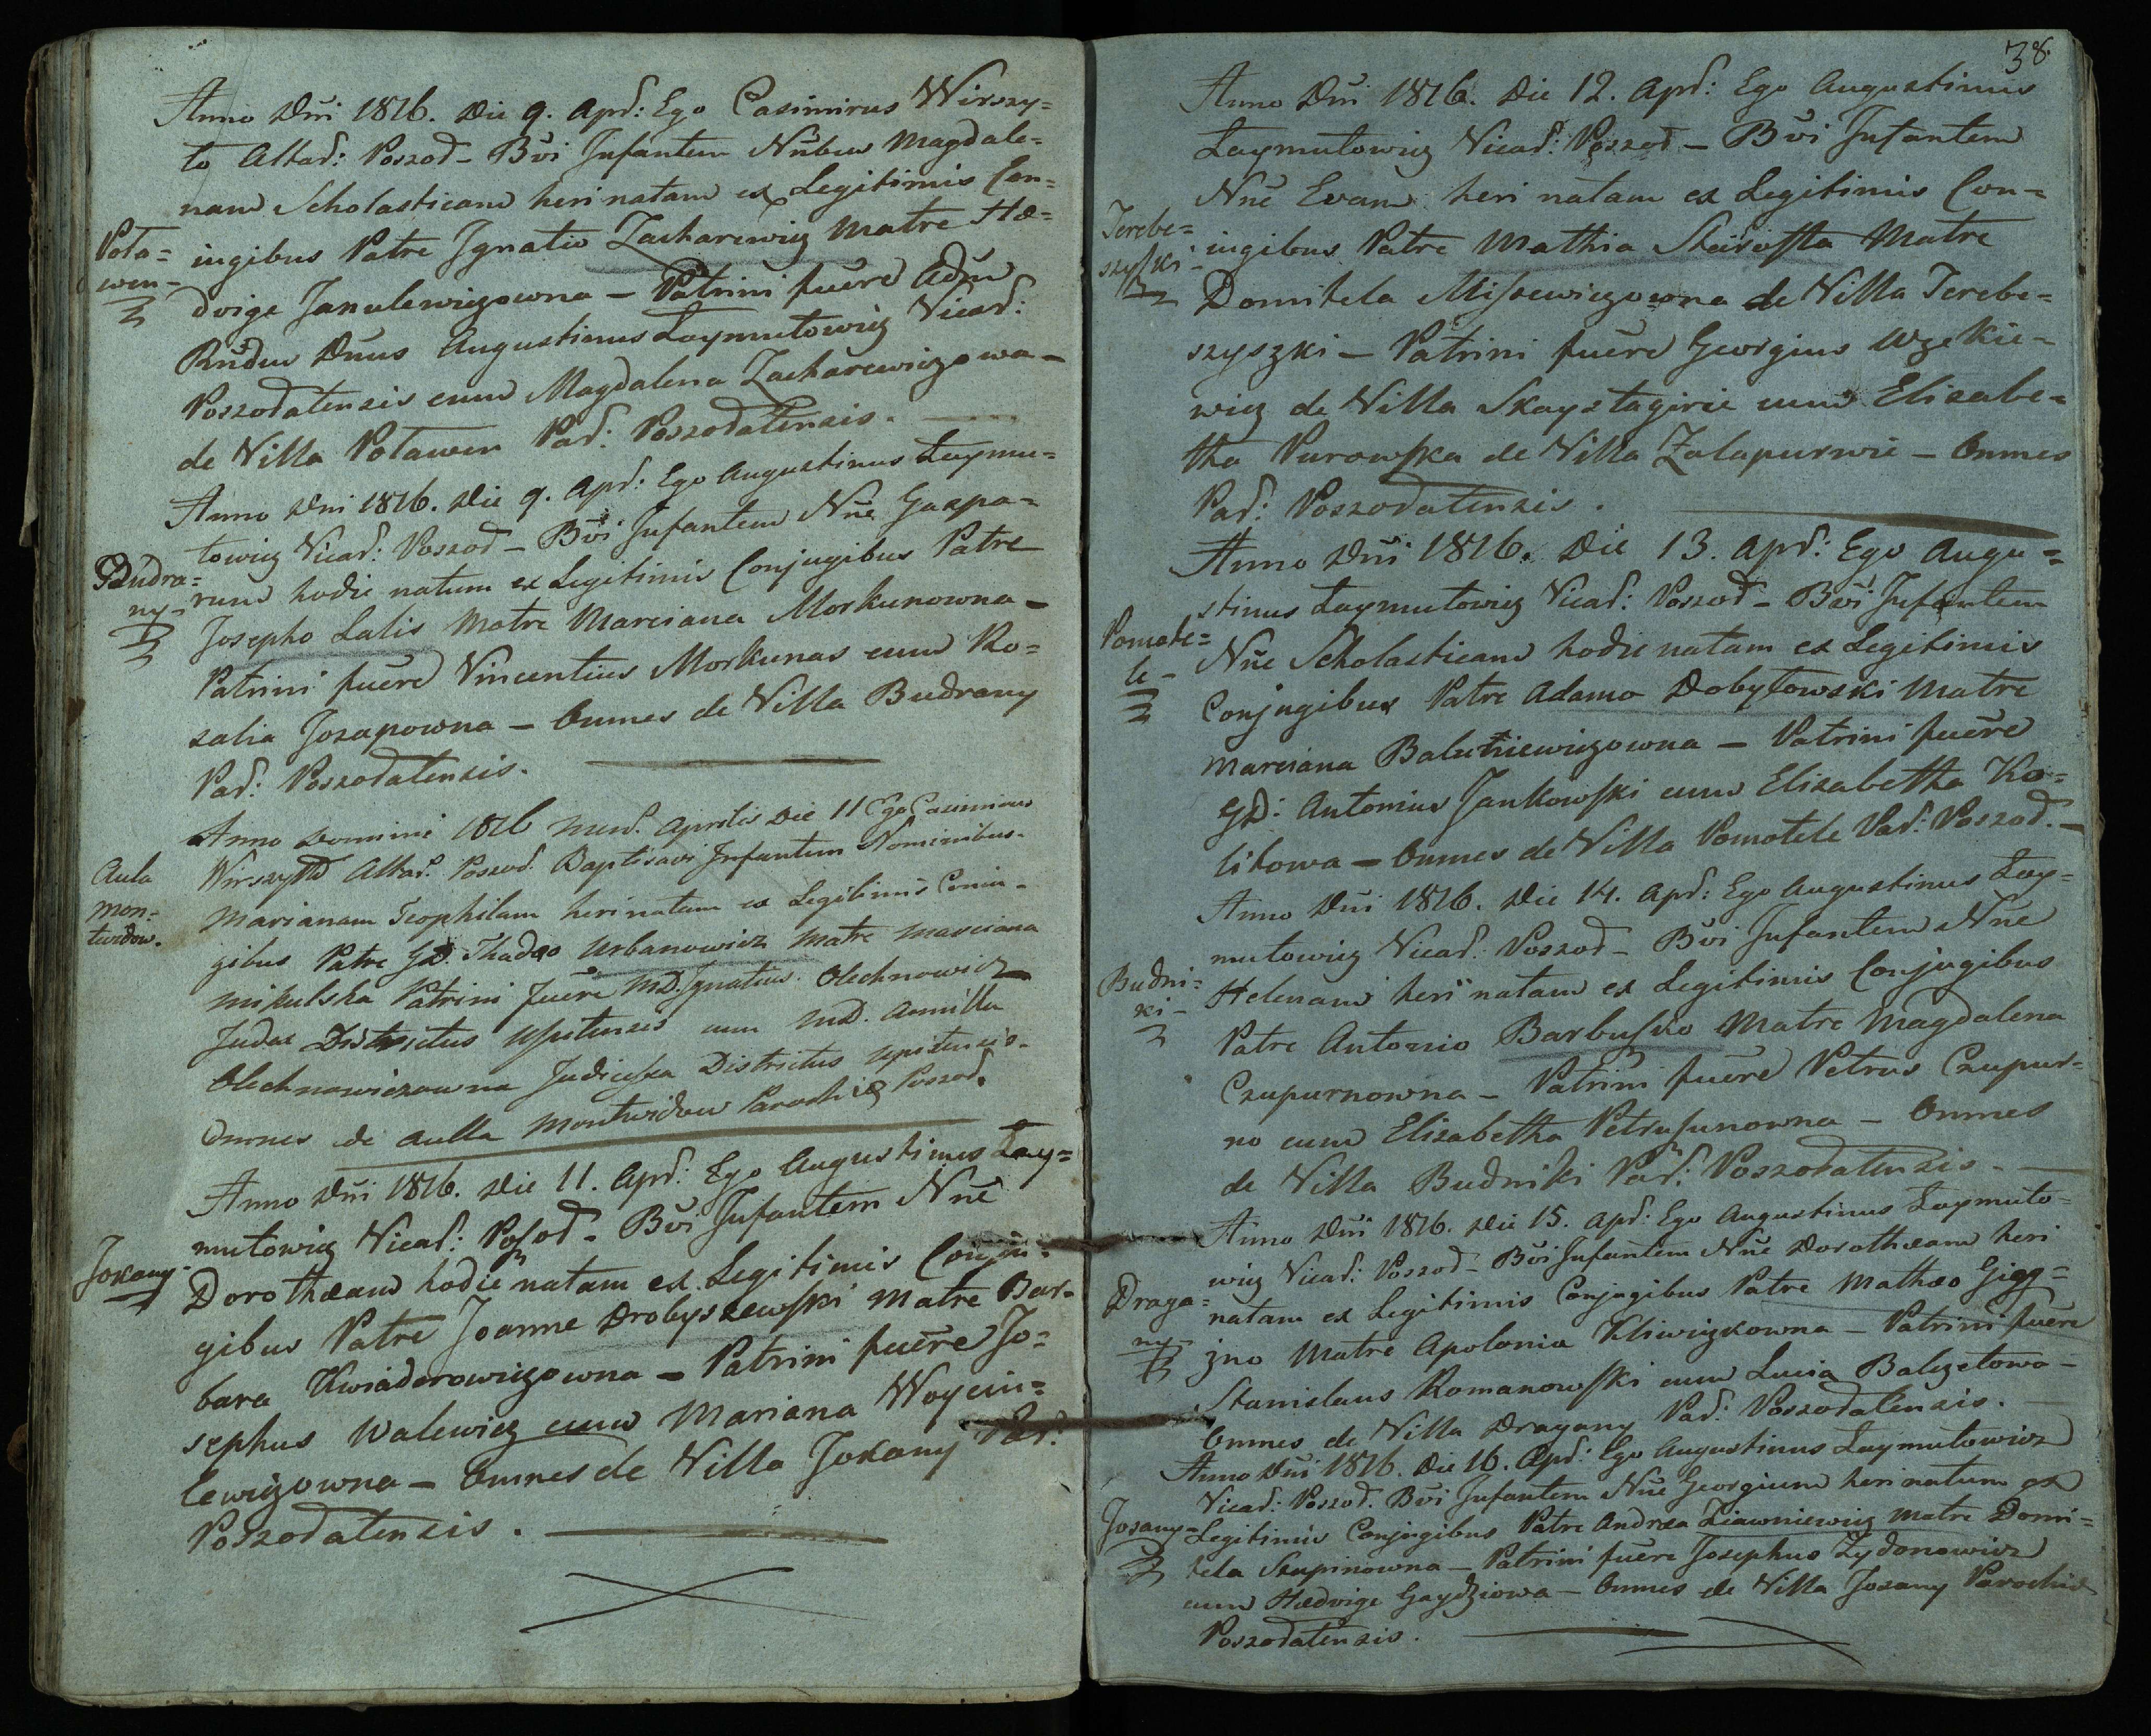 Anno Dni 1816. Die 9. Apr: Ego Casimirus Wirszy=
to Altar: Poszod – Bvi Infantem Nnbus Magdale=
nam Scholasticam heri natam ex Legitimis Con=
Pota=
wen –
iugibus Patre Ignatio Zacharewicz Matre He=
dvige Janulewiczowna – Patrini fuere Adm
Rndus Dnus Augustinus Laymutowicz Vicar:
Poszodatensis cum Magdalena Zacharewiczowa –
de Villa Potawen Par: Poszodatensis.
Anno Dni 1816. Die 9. Apr: Ego Augustinus Laymu=
towicz Vicar: Poszod – Bvi Infantem Nne Gaspa=
Budra=
ny –
rum hodie natum ex Legitimis Conjugibus Patre
Josepho Lalis Matre Marciana Morkunowna –
Patrini fuere Vincentius Morkunas cum Ro=
salia Jozapowna – Omnes de Villa Budrany
Par: Poszodatensis.
Anno Domini 1816 Mens. Aprilis Die 11 Ego Casimirus
Aula
Mon=
twidow.
Wirszytto Altar: Poszod. Baptisavi Infantem Nominibus
Marianam Teophilam heri natam ex Legitimis Coniu-
gibus Patre GD. Thadeo Urbanowicz Matre Marciana
Mikulska Patrini fuere MD. Ignatius Olechnowicz
Judex Districtus Upitensis cum MD. Camilla
Olechnowiczowna Judicessa Districtus Upitensis.
Omnes de Aulla Montwidow Parochiæ Poszod.
Anno Dni 1816. Die 11. Apr: Ego Augustinus Lay=
mutowicz Vicar: Poszod – Bvi Infantem Nne
Jokany –
Dorotheam hodie natam ex Legitimis Conju=
gibus Patre Joanne Drobyszewski Matre Bar=
bara Kwiaderowiczowna – Patrini fuere Jo=
sephus Walewicz cum Mariana Woycie=
lewiczowna – Omnes de Villa Jokany Par:
Poszodatensis.
38.
Anno Dni 1816. Die 12. Apr: Ego Augustinus
Laymutowicz Vicar: Poszod – Bvi Infantem
Nne Evam heri natam ex Legitimis Con=
Terebe=
szyszki
iugibus Patre Mathia Matre
Domitela Missewiczowna de Villa Terebe=
szyszki – Patrini fuere Georgius Uzekie=
wicz de Villa Skaystagirie cum Elisabe=
tha Purowska de Villa Zalapurwie – Omnes
Par: Poszodatensis.
Anno Dni 1816. Die 13. Apr: Ego Augu=
stinus Laymutowicz Vicar: Poszod – Bvi Infantem
Pomote=
le –
Nne Scholasticam hodie natam ex Legitimis
Conjugibus Patre Adamo Dobytowski Matre
Marciana – Patrini fuere
GD: Antonius Jankowski cum Elisabetha Ko=
litowa – Omnes de Villa Pomotele Par: Poszod. –
Anno Dni 1816. Die 14. Apr: Ego Augustinus Lay=
mutowicz Vicar: Poszod – Bvi Infantem Nne
Budni=
ki –
Helenam heri natam ex Legitimis Conjugibus
Patre Antonio Barbusko Matre Magdalena
Czupurnowna – Patrini fuere Petrus Czupur=
no cum Elisabetha – Omnes
de Villa Budniki Par: Poszodatensis.
Anno Dni 1816. Die 15. Apr: Ego Augustinus Laymuto=
wicz Vicar: Poszod – Bvi Infantem Nne Dorotheam heri
Draga=
ny –
natam ex Legitimis Conjugibus Patre Matheo
zno Matre Apolonia – Patrini fuere
Stanislaus Romanowski cum Lucia Balczetowa –
Omnes de Villa Dragany Par: Poszodatensis.
Anno Dni 1816. Die 16. Apr: Ego Augustinus Laymutowicz
Vicar: Poszod. Bvi Infantem Nne Georgium heri natum ex
Josany –
Legitimis Conjugibus Patre Andrea Ziawniewicz Matre Domi=
tela Szupinowna – Patrini fuere Josephus Zydonowicz
cum Hedvige Gaydziowa – Omnes de Villa Josany Parochiæ
Poszodatensis.